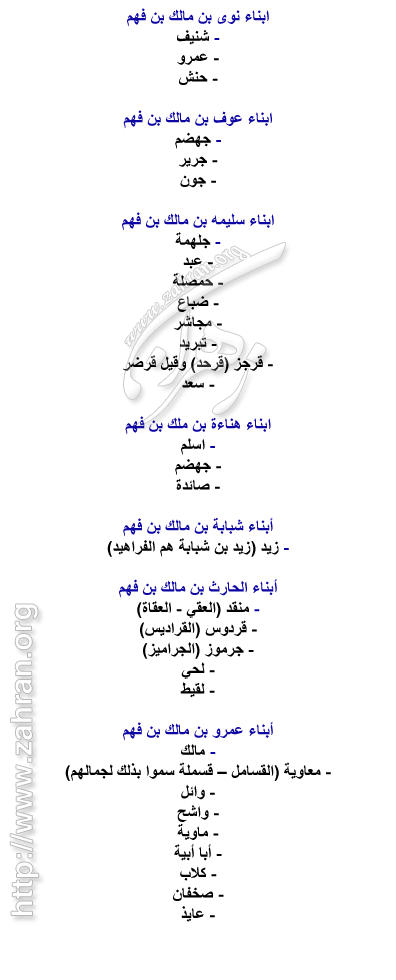 ابناء نوى بن مالك بن فهم
- شنيف
- عمرو
- حنش
ابناء عوف بن مالك بن فهم
- جهضم
- جرير
- جون
ابناء سليمه بن مالك بن فهم
- جلهمة
- عبد
- حمصلة
- ضباع
- مجاشر
- تبريد
- قرجز (قرحد) وقيل قرضر
- سعد
ابناء هناءة بن ملك بن فهم
- اسلم
- جهضم
- صائدة
أبناء شبابة بن مالك بن فهم
- زيد (زيد بن شبابة هم الفراهيد)
أبناء الحارث بن مالك بن فهم
- منقد (العقي - العقاة)
- قردوس (القراديس)
- جرموز (الجراميز)
- لحي
- لقيط
أبناء عمرو بن مالك بن فهم
- مالك
- معاوية (القسامل – قسملة سموا بذلك لجمالهم)
- وائل
- واشح
- ماوية
- أبا أبية
- كلاب
- صخفان
- عايذ
www.zahran.org
زهران
http://www.zahran.org